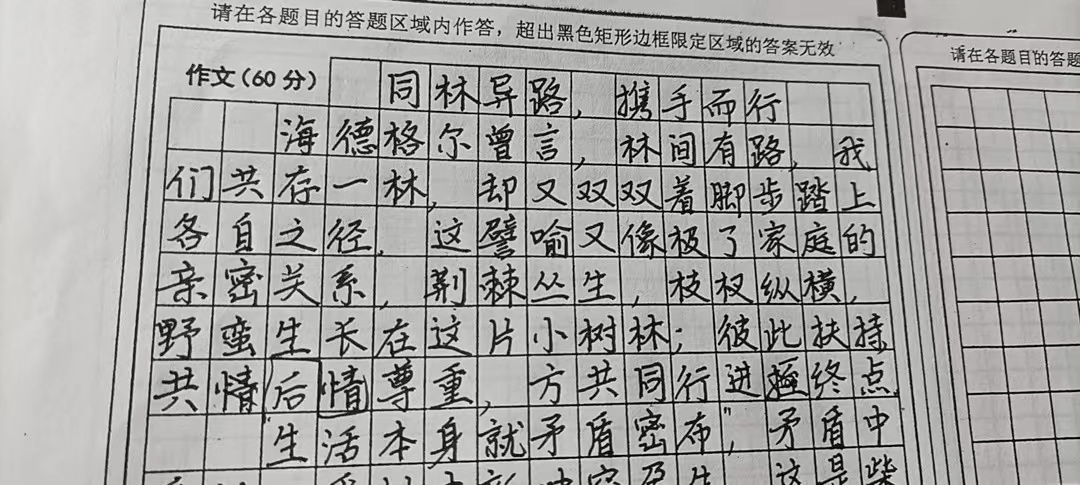 请在各题目的答题区域内作答，超出黑色矩形边框限定区域的答案无效
请在各题目的答题
作文(60分)
同林异路，携手而行
海德格尔曾言，林间有路，我
们共存一林，却又双双着脚步踏上
各自之径，这譬喻又像极了家庭的
亲密关系，荆棘丛生，枝杈纵横，
野蛮生长在这片小树林；彼此扶持
共情后情尊重，方共同行进终点
生活本身就矛盾密布"，矛盾中
这是柴